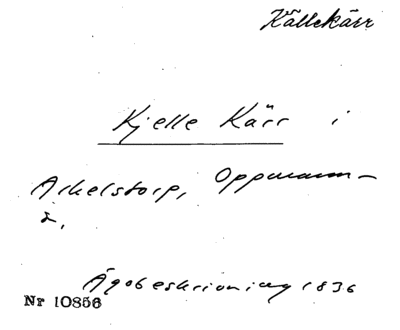 Källekärr
Kjelle Kärr i
Arkelstorp, Oppmann-
a.
Ägobeskrivning 1836
Nr 10856